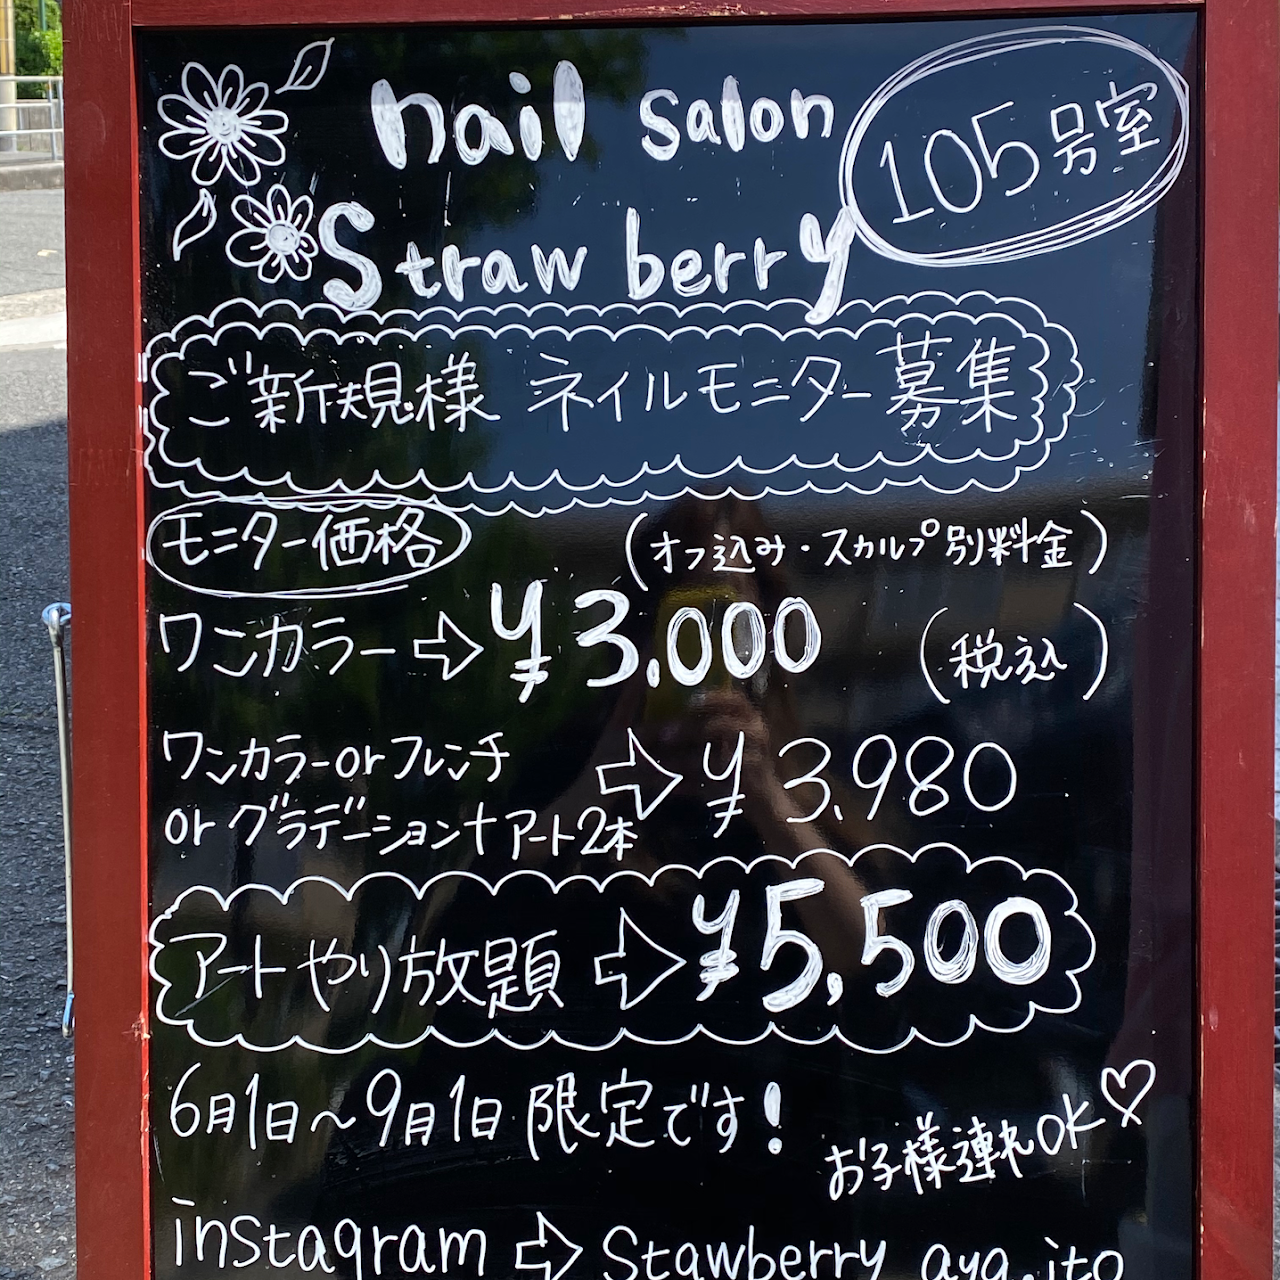 nail salon
105号室
Strawberry
ご新規様 ネイルモニター募集
モニター価格
(オフ込み・スカルプ別料金)
ワンカラー⇨¥3.000 (税込)
ワンカラーorフレンチ
orグラデーション+アート2本
⇨¥3.980
アートやり放題⇨¥5,500
6月1日〜9月1日 限定です!
お子様連れOK♡
instagram⇨Stawberry_aya.ito